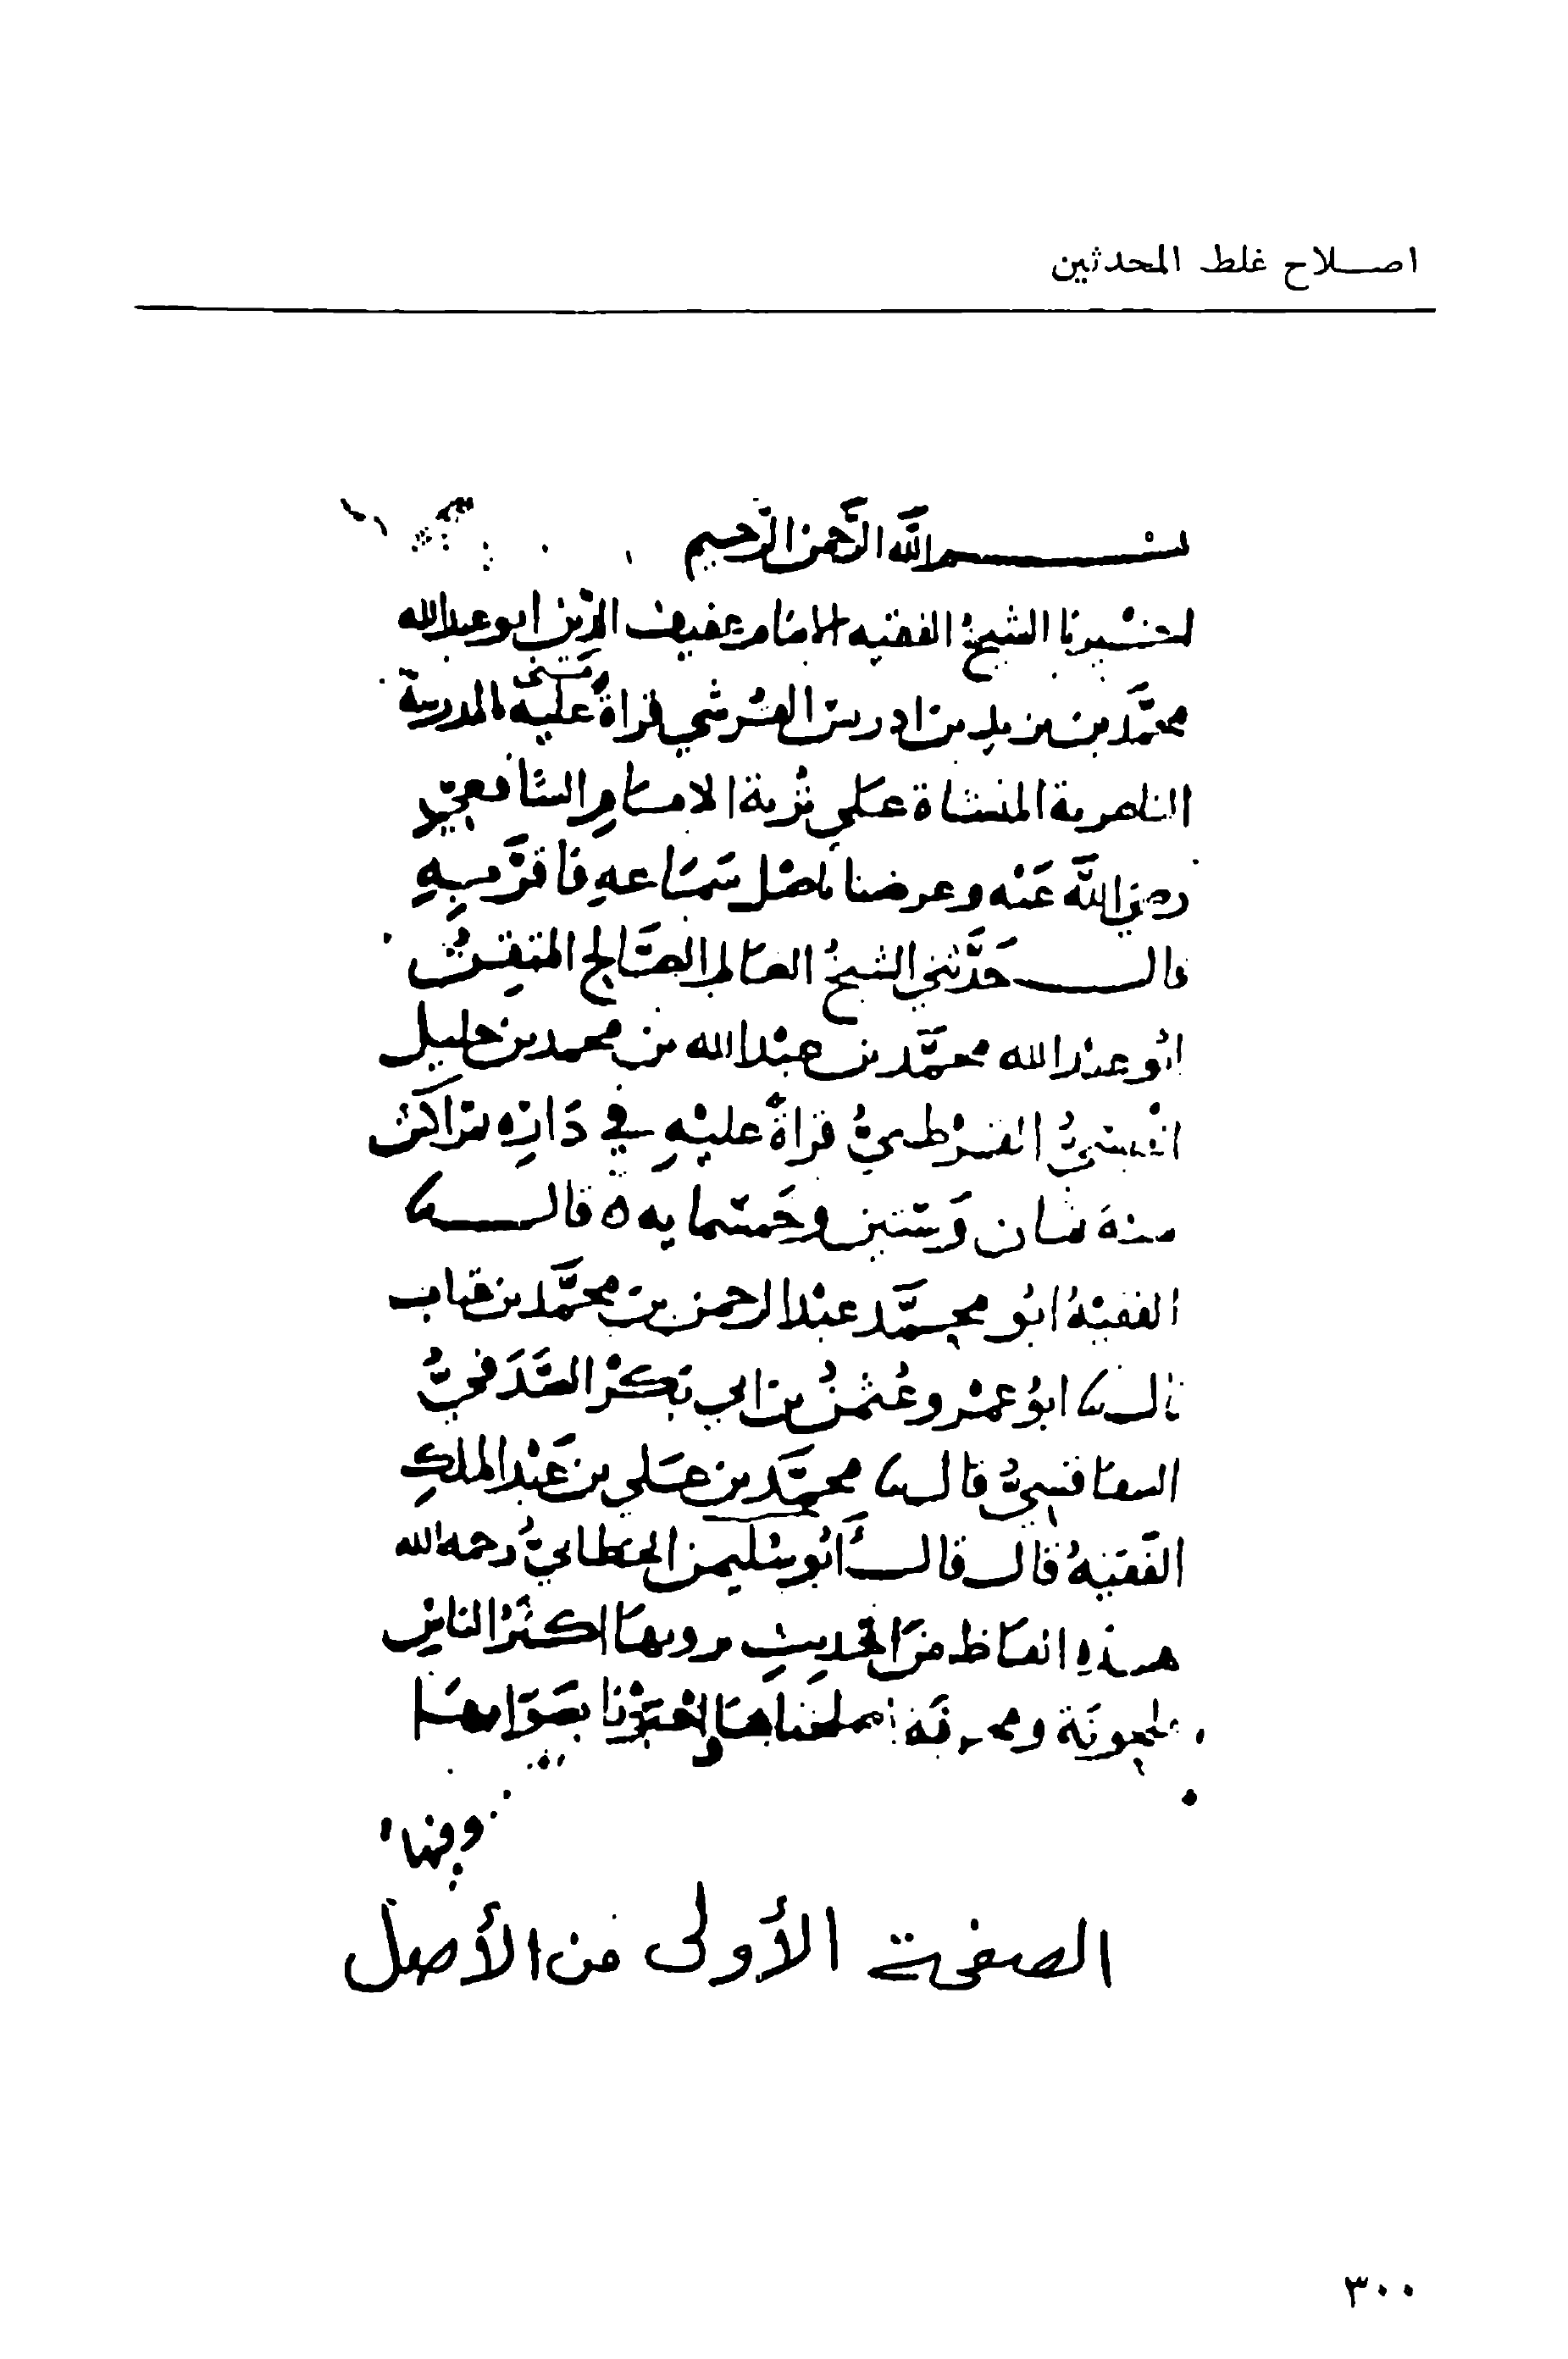 اصــلاح غلط المحدثين
بســم الله الرَّحمن الرَّحيم
اخبرنا الشيخُ الفقيه الامام عفيف الدّين ابو عبد الله
محمَّد بن يزيد بن ادريس القرشي قراةً عليه بالمدرسة
الناصرية المنشاة على تُربة الامام الشافعيّ
رضي الله عَنْه وعرضنا باصْل سَمَاعه فاقرَّ به
قالــ حَدَّثني الشيخُ العالم الصَّالح المتقن
ابُو عبْد الله محمَّد بن عبْد الله بن محمد بن خليل
القيسيُّ القرطبيُّ قراةً عليْهِ في دَارِه بمراكش
سنة ثمان وَستين وخمسمايه ٥ قالــ نا
الفقيْهُ ابُو محمَّد عبْد الرحمن بن محمَّد بن عتاب
قالــ نا ابُو عمْرو عُثمنُ بن ابي بَكرْ الصَّدَفيُّ
السفاقسيُّ قالــ نا محمَّد بن عَلي بن عَبْد الملكِ
الفَقيْهُ قالــ قالــ أبُو سُليمن الخطابيُّ رحمه الله
هــذه الفاظ منَ الحديثِ يرويها اكثَرُ الناسِ
ملحونَة ومحرفَة اصلحناها واخبَرْنا بصَوَابهَا
وفيها
الصفحة الأولى من الأصل
٣٠٠